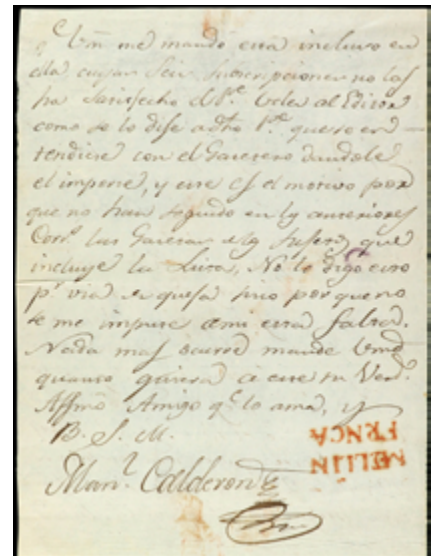 Vm me mandó esta incluso en
ella cuyas Seis Suscripciones no las
ha Satisfecho el Pe. Velez al Editor
como se lo dije a dho Pe. que se en
tendiese con el Gazetero dandole
el importe, y este es el motivo por
que no han seguido en los anteriores
Corrs. las Gazetas de los Sujetos que
incluye la Lista, No lo digo esto
pr. via de quexa sino por que no
se me impute a mi esta falta.
Nada mas ocurre mande Vmd
quanto quiera a este su Verd.
Affmo. Amigo qe. lo ama, y
B. S. M.
Manl. Calderon
MELLIN
FRNCA